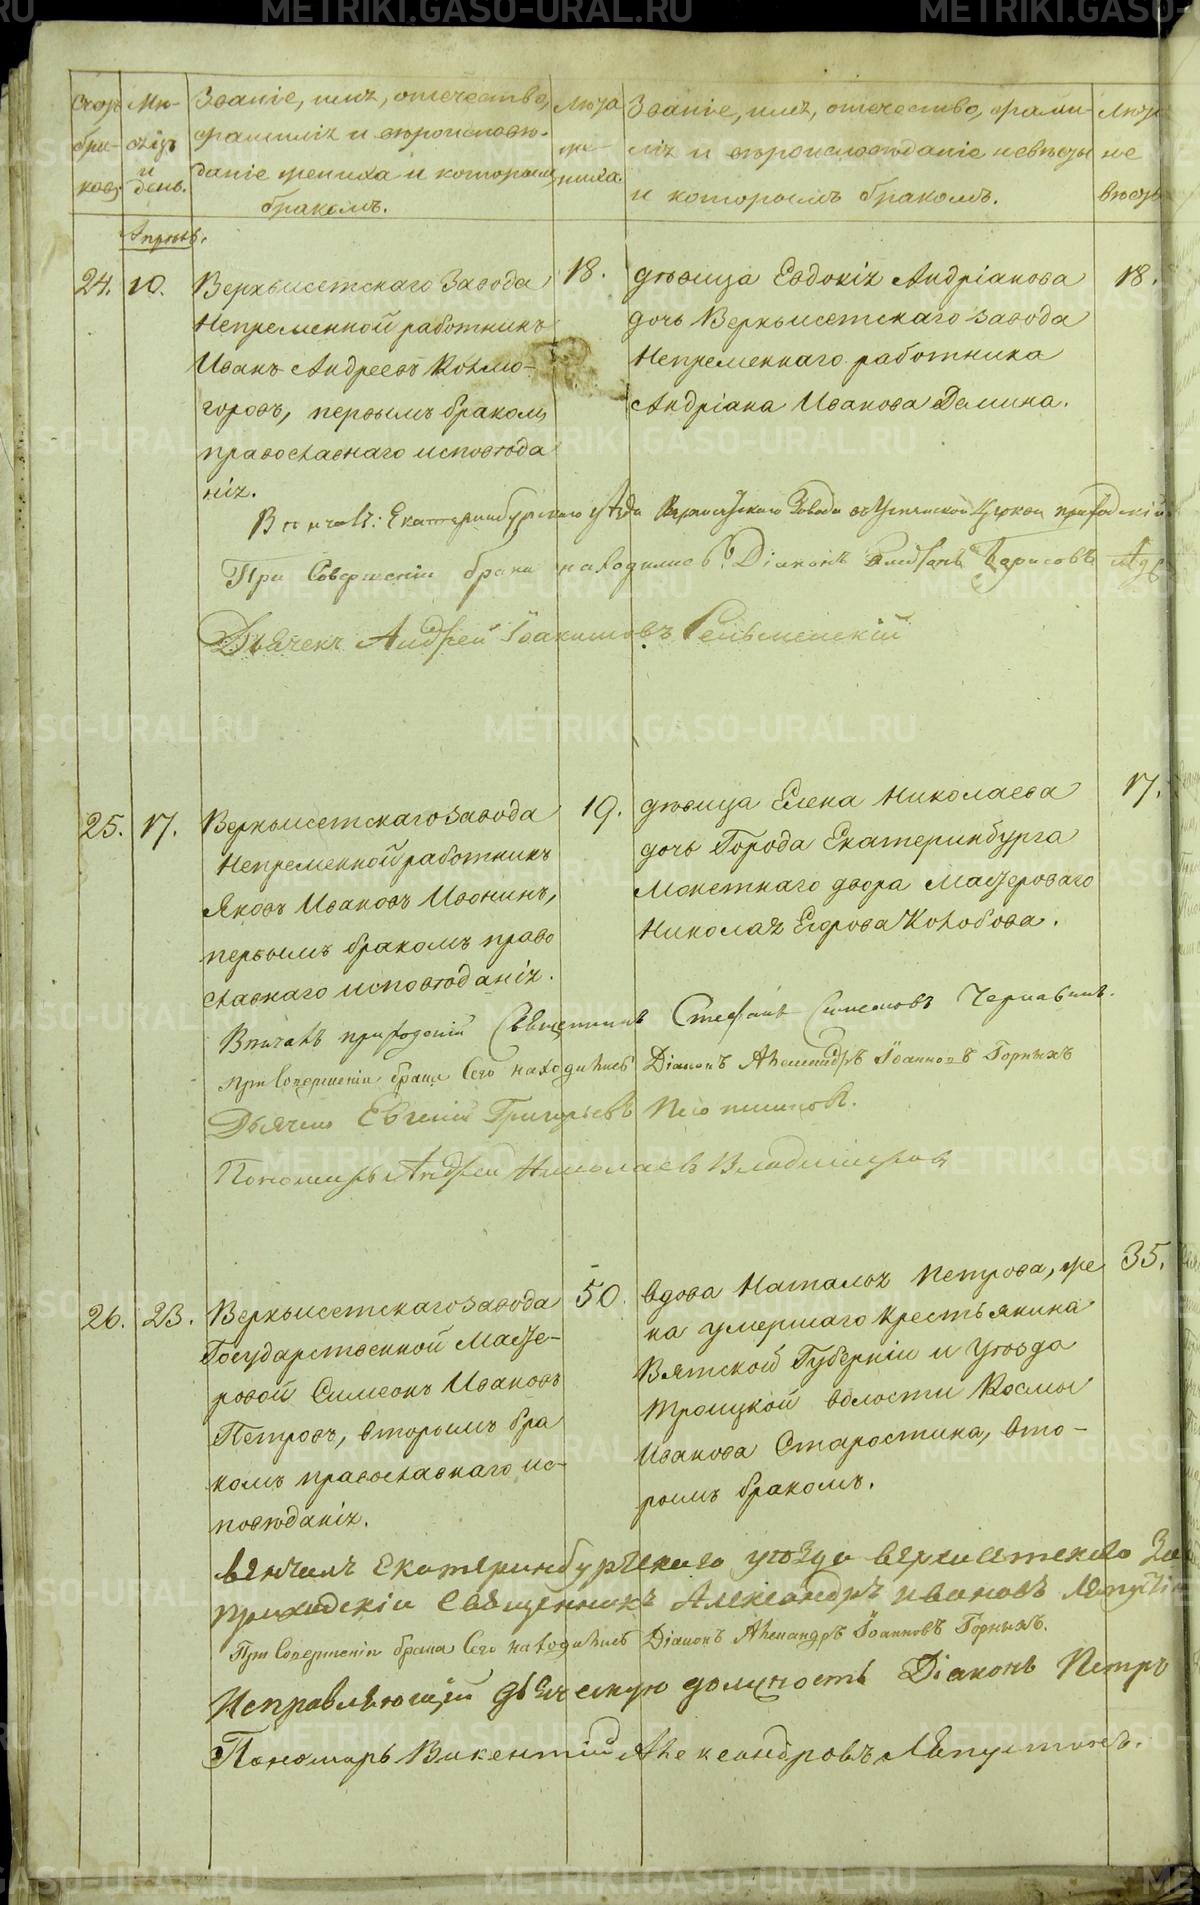 METRIKI.GASO-URAL.RU
Счетъ браковъ
Мѣсяцъ и день.
Званіе, имя, отечество,
фамилія и вѣроисповѣ-
даніе жениха и которымъ
бракомъ.
Лѣта жениха
Званіе, имя, отечество, фами-
лія и вѣроисповѣданіе невѣсты
и которымъ бракомъ.
Лѣта невѣсты
Апрѣль.
24. 10.
Верхъисетскаго завода
Непременной работникъ
Иванъ Андреевъ Колмо-
горовъ, первымъ бракомъ,
православнаго исповѣда
нія.
18.
дѣвица Евдокія Андріанова
дочь Верхъисетскаго завода
Непременнаго работника
Андріана Иванова Демина.
18.
Вѣнчалъ: Екатеринбургскаго уѣзда Верхисетскаго Завода Успенской Церкви приходскій
При Совершеніи брака находились: Діаконъ Борисовъ
Дьячекъ Андрей Іоакимовъ
25. 17.
Верхъисетскаго завода
Непременной работникъ
Яковъ Ивановъ Ивонинъ,
первымъ бракомъ право
славнаго исповѣданія.
19.
дѣвица Елена Николаева
дочь Города Екатеринбурга
Монетнаго двора Мастероваго
Николая Егорова Колобова.
17.
Вѣнчалъ приходскій Священникъ Стефанъ Симеоновъ Чернавинъ.
При Совершеніи брака Сего находились Діаконъ Александръ Іоанновъ Горныхъ
Дьячекъ Евгеній Григорьевъ
Пономарь Андрей Николаевъ Владимировъ
26. 23.
Верхъисетскаго завода
Государственной Масте-
ровой Симеонъ Ивановъ
Петровъ, вторымъ бра
комъ православнаго ис-
повѣданія.
50.
вдова Наталья Петрова, же
на умершаго крестьянина
Вятской Губерніи и Уѣзда
Троицкой волости Космы
Иванова Старостина, вто-
рымъ бракомъ.
35.
вѣнчалъ Екатеринбургскаго уѣзда верхисетскаго За
приходскій Священникъ Александръ ивановъ Ляпусти
При Совершеніи брака Сего находились Діаконъ Александръ Іоанновъ Горныхъ.
Исправляющій дьяческую должность Діаконъ Петръ
Пономарь Викентій Александровъ Ляпустинъ.